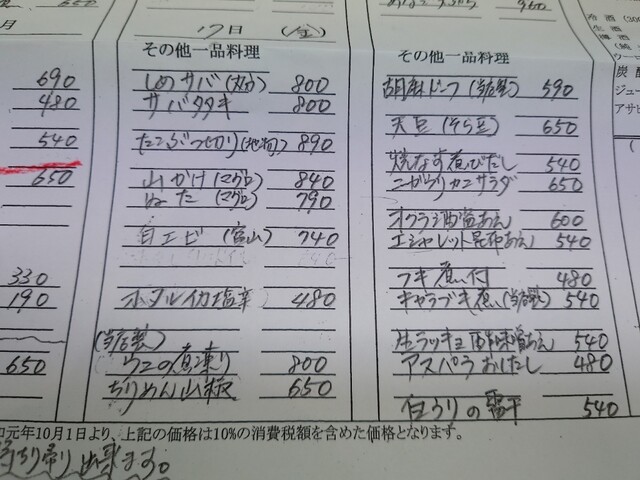 月
690
480
540
650
330
190
650
17日 (金)
その他一品料理
しめサバ(大分) 800
サバタタキ 800
たこぶつ切り(地物) 890
山かけ(マグロ) 840
ぬた(マグロ) 790
白エビ(富山) 740
ホタルイカ塩辛 480
(当店製)
ウニの煮凍り 800
ちりめん山椒 650
その他一品料理
胡麻ドーフ(当店製) 590
天豆(そら豆) 650
焼なす煮びたし 540
ニガウリカニサラダ 650
オクラ酒盗あえ 600
エシャレット昆布あえ 540
フキ煮付 480
キャラブキ煮(当店製) 540
生ラッキョ 味噌あえ 540
アスパラおひたし 480
白ウリの雷干 540
元年10月1日より、上記の価格は10%の消費税額を含めた価格となります。
持ち帰り出来ます。
冷酒
生酒
炭酸
ジュー
アサヒ